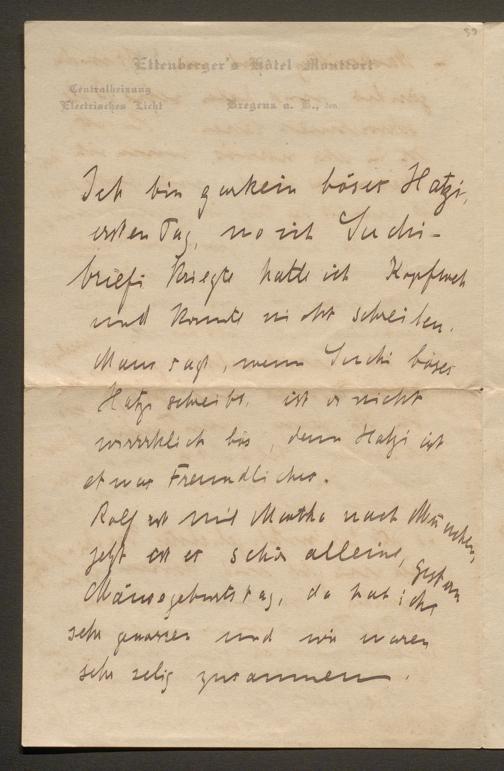 59
Ettenberger's Hôtel Montfort
Centralheizung
Electrisches Licht
Bregenz a. B., den
Ich bin garkein böser Hatzi,
ersten Tag, wo ich Suchi-
briefi kriegte hatte ich Kopfweh
und konnte nicht schreiben.
Maus sagt, wenn Suchi böser
Hatzi schreibt, ist er nicht
wirrklich bös, denn Hatzi ist
etwas Freundliches.
Rolf ist mit Martha nach München,
jetzt ist es schön alleine, gestern
Mäusegeburtstag, da hat ichs
sehr genossen und wir waren
sehr selig zusammen.